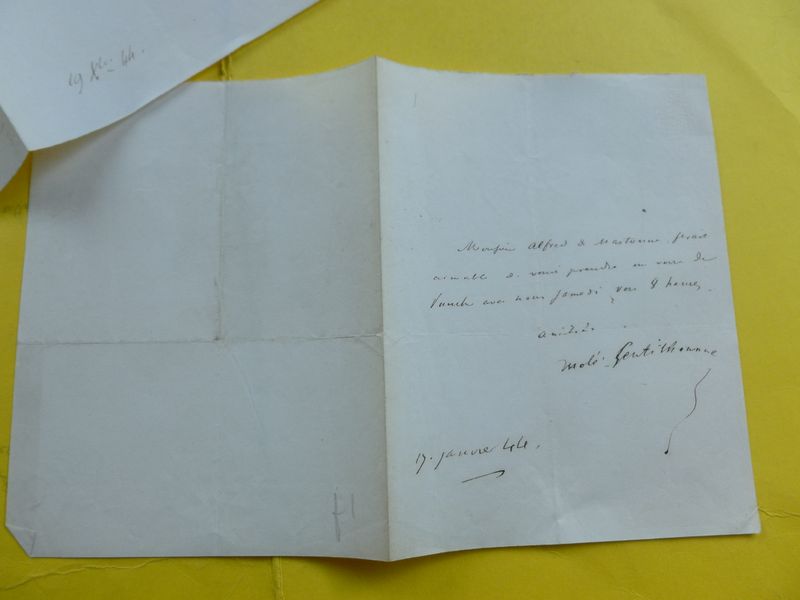 19 Xbre 44.
Monsieur Alfred de Martonne serait
aimable de venir prendre un verre de
Punch avec nous samedi vers 8 heures,
amitiés
Molé-Gentilhomme
17. janvier 44.
f1